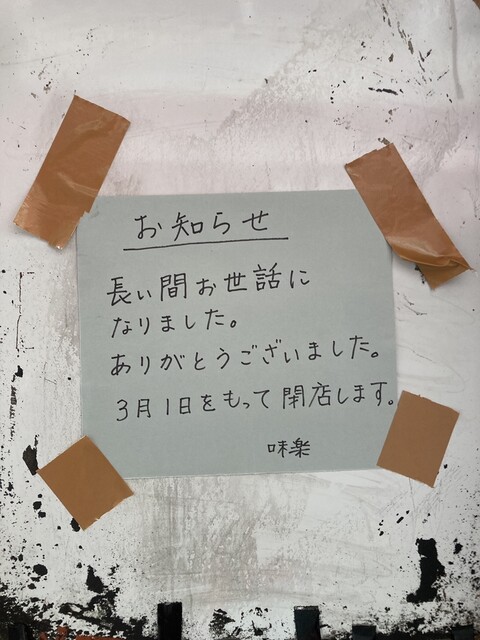 お知らせ
長い間お世話に
なりました。
ありがとうございました。
3月1日をもって閉店します。
味楽